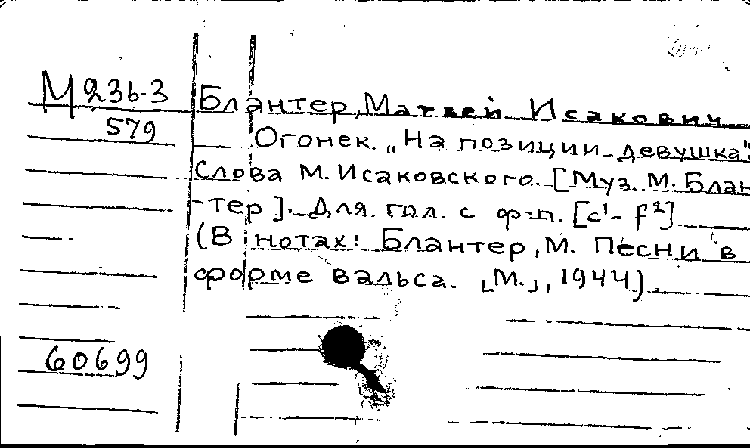 М 236-3
579
Блантер, Матвей Исакович
Огонек. „На позиции девушка"
Слова М. Исаковского. [Муз. М. Блан-
тер]. Для гол. с ф-п. [c¹- f²]
(В нотах: Блантер, М. Песни в
форме вальса. [М.], 1944).
60699